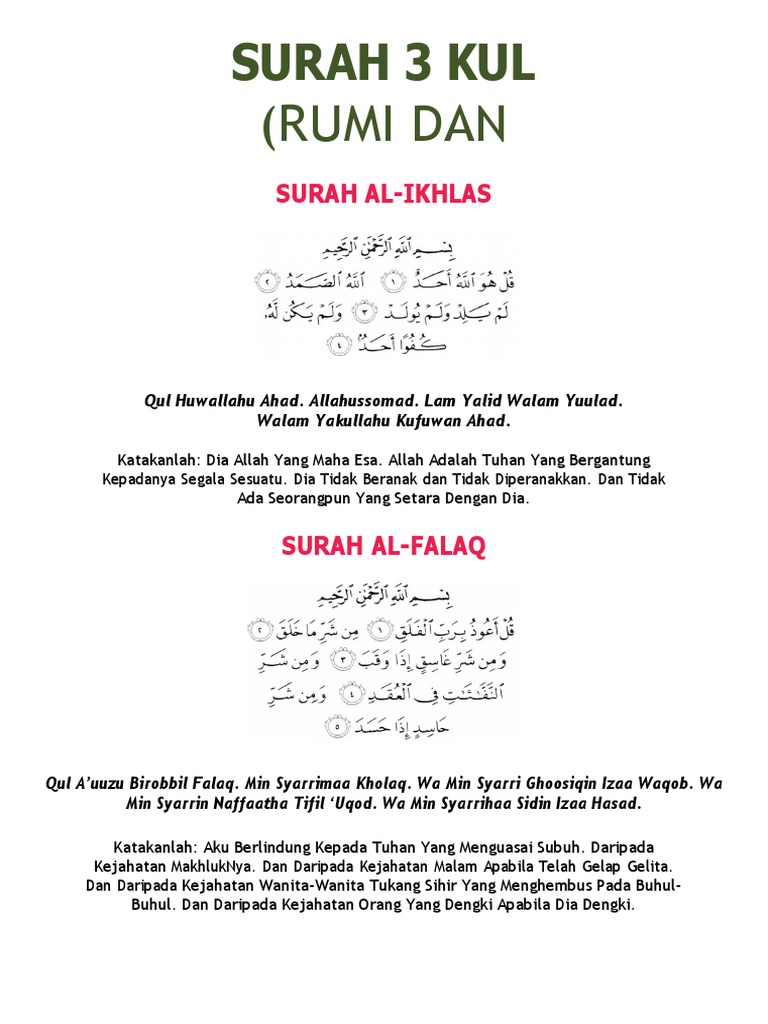 SURAH 3 KUL
(RUMI DAN
SURAH AL-IKHLAS
بِسْمِ ٱللَّهِ ٱلرَّحْمَٰنِ ٱلرَّحِيمِ
قُلْ هُوَ ٱللَّهُ أَحَدٌ ١ ٱللَّهُ ٱلصَّمَدُ ٢
لَمْ يَلِدْ وَلَمْ يُولَدْ ٣ وَلَمْ يَكُن لَّهُۥ
كُفُوًا أَحَدٌۢ ٤
Qul Huwallahu Ahad. Allahussomad. Lam Yalid Walam Yuulad.
Walam Yakullahu Kufuwan Ahad.
Katakanlah: Dia Allah Yang Maha Esa. Allah Adalah Tuhan Yang Bergantung
Kepadanya Segala Sesuatu. Dia Tidak Beranak dan Tidak Diperanakkan. Dan Tidak
Ada Seorangpun Yang Setara Dengan Dia.
SURAH AL-FALAQ
بِسْمِ ٱللَّهِ ٱلرَّحْمَٰنِ ٱلرَّحِيمِ
قُلْ أَعُوذُ بِرَبِّ ٱلْفَلَقِ ١ مِن شَرِّ مَا خَلَقَ ٢
وَمِن شَرِّ غَاسِقٍ إِذَا وَقَبَ ٣ وَمِن شَرِّ
ٱلنَّفَّٰثَٰتِ فِى ٱلْعُقَدِ ٤ وَمِن شَرِّ
حَاسِدٍ إِذَا حَسَدَ ٥
Qul A’uuzu Birobbil Falaq. Min Syarrimaa Kholaq. Wa Min Syarri Ghoosiqin Izaa Waqob. Wa
Min Syarrin Naffaatha Tifil ‘Uqod. Wa Min Syarrihaa Sidin Izaa Hasad.
Katakanlah: Aku Berlindung Kepada Tuhan Yang Menguasai Subuh. Daripada
Kejahatan MakhlukNya. Dan Daripada Kejahatan Malam Apabila Telah Gelap Gelita.
Dan Daripada Kejahatan Wanita-Wanita Tukang Sihir Yang Menghembus Pada Buhul-
Buhul. Dan Daripada Kejahatan Orang Yang Dengki Apabila Dia Dengki.